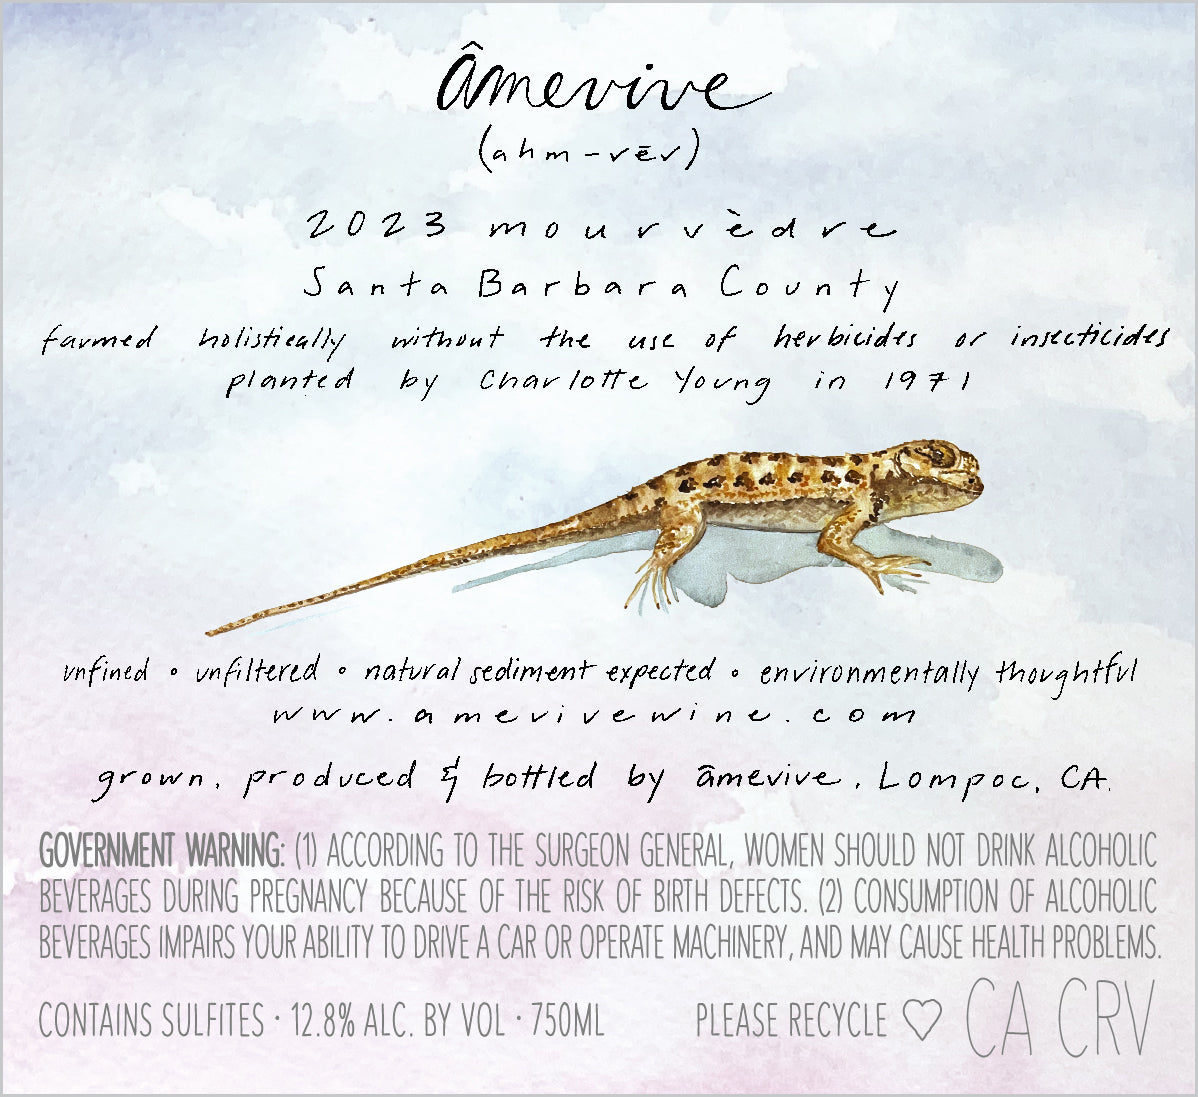 âmevive
(ahm-vēv)
2023 mourvèdre
Santa Barbara County
farmed holistically without the use of herbicides or insecticides
planted by Charlotte Young in 1971
unfined ∘ unfiltered ∘ natural sediment expected ∘ environmentally thoughtful
www.amevivewine.com
grown, produced & bottled by âmevive, Lompoc, CA.
GOVERNMENT WARNING: (1) ACCORDING TO THE SURGEON GENERAL, WOMEN SHOULD NOT DRINK ALCOHOLIC
BEVERAGES DURING PREGNANCY BECAUSE OF THE RISK OF BIRTH DEFECTS. (2) CONSUMPTION OF ALCOHOLIC
BEVERAGES IMPAIRS YOUR ABILITY TO DRIVE A CAR OR OPERATE MACHINERY, AND MAY CAUSE HEALTH PROBLEMS.
CONTAINS SULFITES · 12.8% ALC. BY VOL · 750ML PLEASE RECYCLE ♡ CA CRV